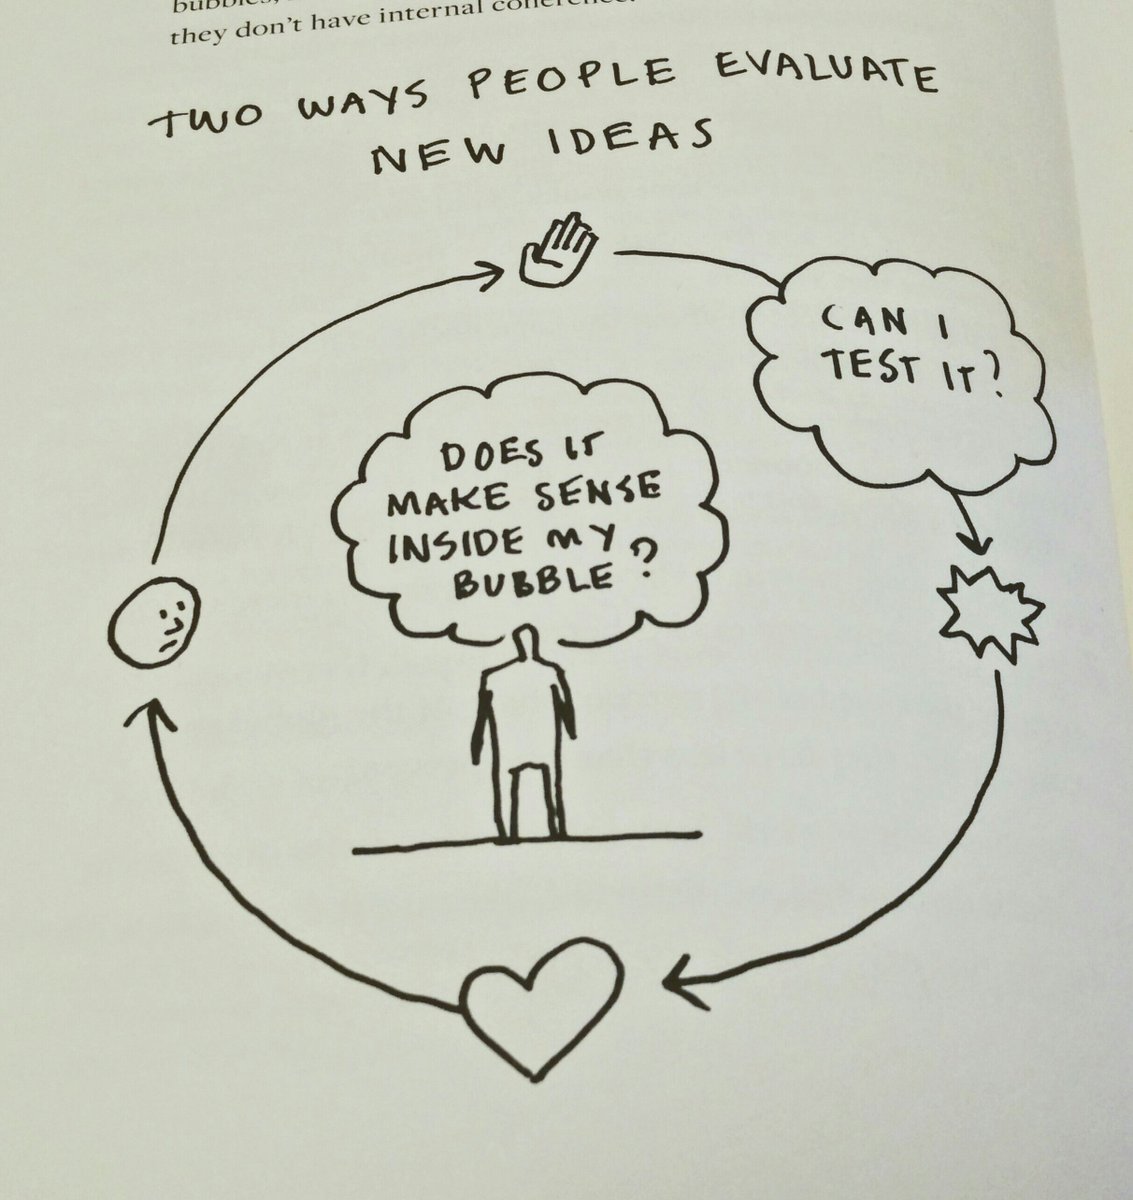 they don't have internal coherence.
TWO WAYS PEOPLE EVALUATE
NEW IDEAS
CAN I
TEST IT?
DOES IT
MAKE SENSE
INSIDE MY
BUBBLE?